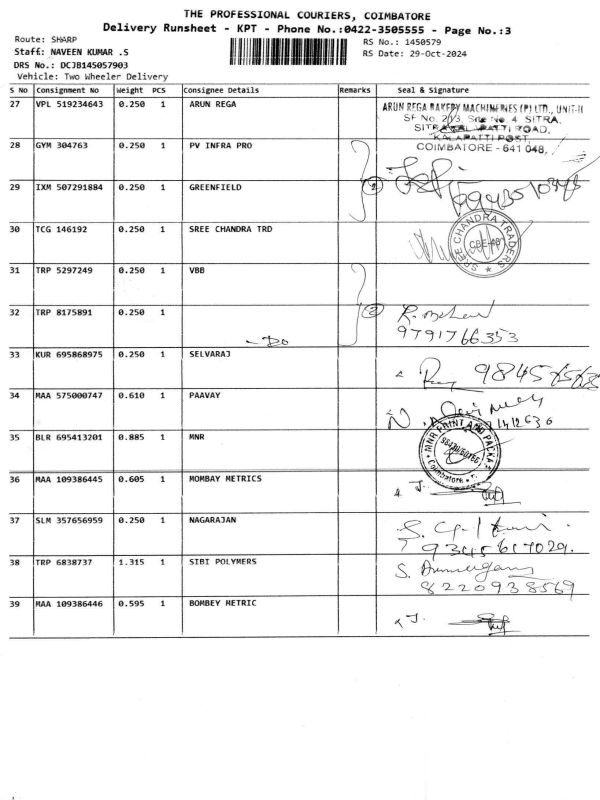 THE PROFESSIONAL COURIERS, COIMBATORE
Delivery Runsheet - KPT - Phone No.:0422-3505555 - Page No.:3
Route: SHARP
RS No.: 1450579
Staff: NAVEEN KUMAR .S
RS Date: 29-Oct-2024
DRS No.: DCJB145057903
Vehicle: Two Wheeler Delivery
S No Consignment No Weight PCS Consignee Details Remarks Seal & Signature
27 VPL 519234643 0.250 1 ARUN REGA
ARUN REGA BAKERY MACHINERIES (P) LTD., UNIT-II
SF No. 2/3, Site No. 4 SITRA,
KALAPATTI ROAD,
KALAPATTI POST,
COIMBATORE - 641 048,
28 GYM 304763 0.250 1 PV INFRA PRO
29 IXM 507291884 0.250 1 GREENFIELD 2
30 TCG 146192 0.250 1 SREE CHANDRA TRD
SREE CHANDRA TRADERS
CBE-48
31 TRP 5297249 0.250 1 VBB
32 TRP 8175891 0.250 1 2
9791766353
- DO
33 KUR 695868975 0.250 1 SELVARAJ
34 MAA 575000747 0.610 1 PAAVAY
35 BLR 695413201 0.885 1 MNR
MNR PRINT AND PACK
Coimbatore
36 MAA 109386445 0.605 1 MOMBAY METRICS
J.
37 SLM 357656959 0.250 1 NAGARAJAN
9345617029.
38 TRP 6838737 1.315 1 SIBI POLYMERS
S. Arumugam
8220938569
39 MAA 109386446 0.595 1 BOMBEY METRIC
J.